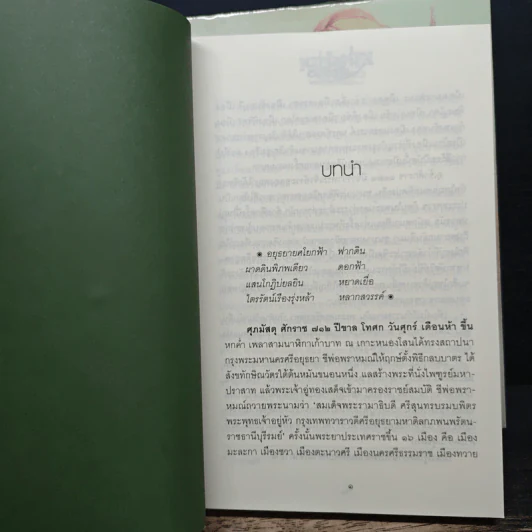 บทนำ
๏ อยุธยายศโยกฟ้า ฟากดิน
ผาดดินพิภพเดียว ดอกฟ้า
แสนโกฏิบ่ยลยิน หยาดเยื่อ
ไตรรัตน์เรืองรุ่งหล้า หลากสวรรค์ ๏
ศุภมัสดุ ศักราช ๗๑๒ ปีขาล โทศก วันศุกร์ เดือนห้า ขึ้น
หกค่ำ เพลาสามนาฬิกาเก้าบาท ณ เกาะหนองโสนได้ทรงสถาปนา
กรุงพระมหานครศรีอยุธยา ชีพ่อพราหมณ์ให้ฤกษ์ตั้งพิธีกลบบาตร ได้
สังข์ทักษิณวัตรใต้ต้นหมันขอนหนึ่ง แลสร้างพระที่นั่งไพฑูรย์มหา-
ปราสาท แล้วพระเจ้าอู่ทองเสด็จเข้ามาครองราชย์สมบัติ ชีพ่อพรา-
หมณ์ถวายพระนามว่า 'สมเด็จพระรามาธิบดี ศรีสุนทรบรมบพิตร
พระพุทธเจ้าอยู่หัว กรุงเทพทวาราวดีศรีอยุธยามหาดิลกภพนพรัตน-
ราชธานีบุรีรมย์' ครั้งนั้นพระยาประเทศราชขึ้น ๑๖ เมือง คือ เมือง
มะละกา เมืองชวา เมืองตะนาวศรี เมืองนครศรีธรรมราช เมืองทวาย